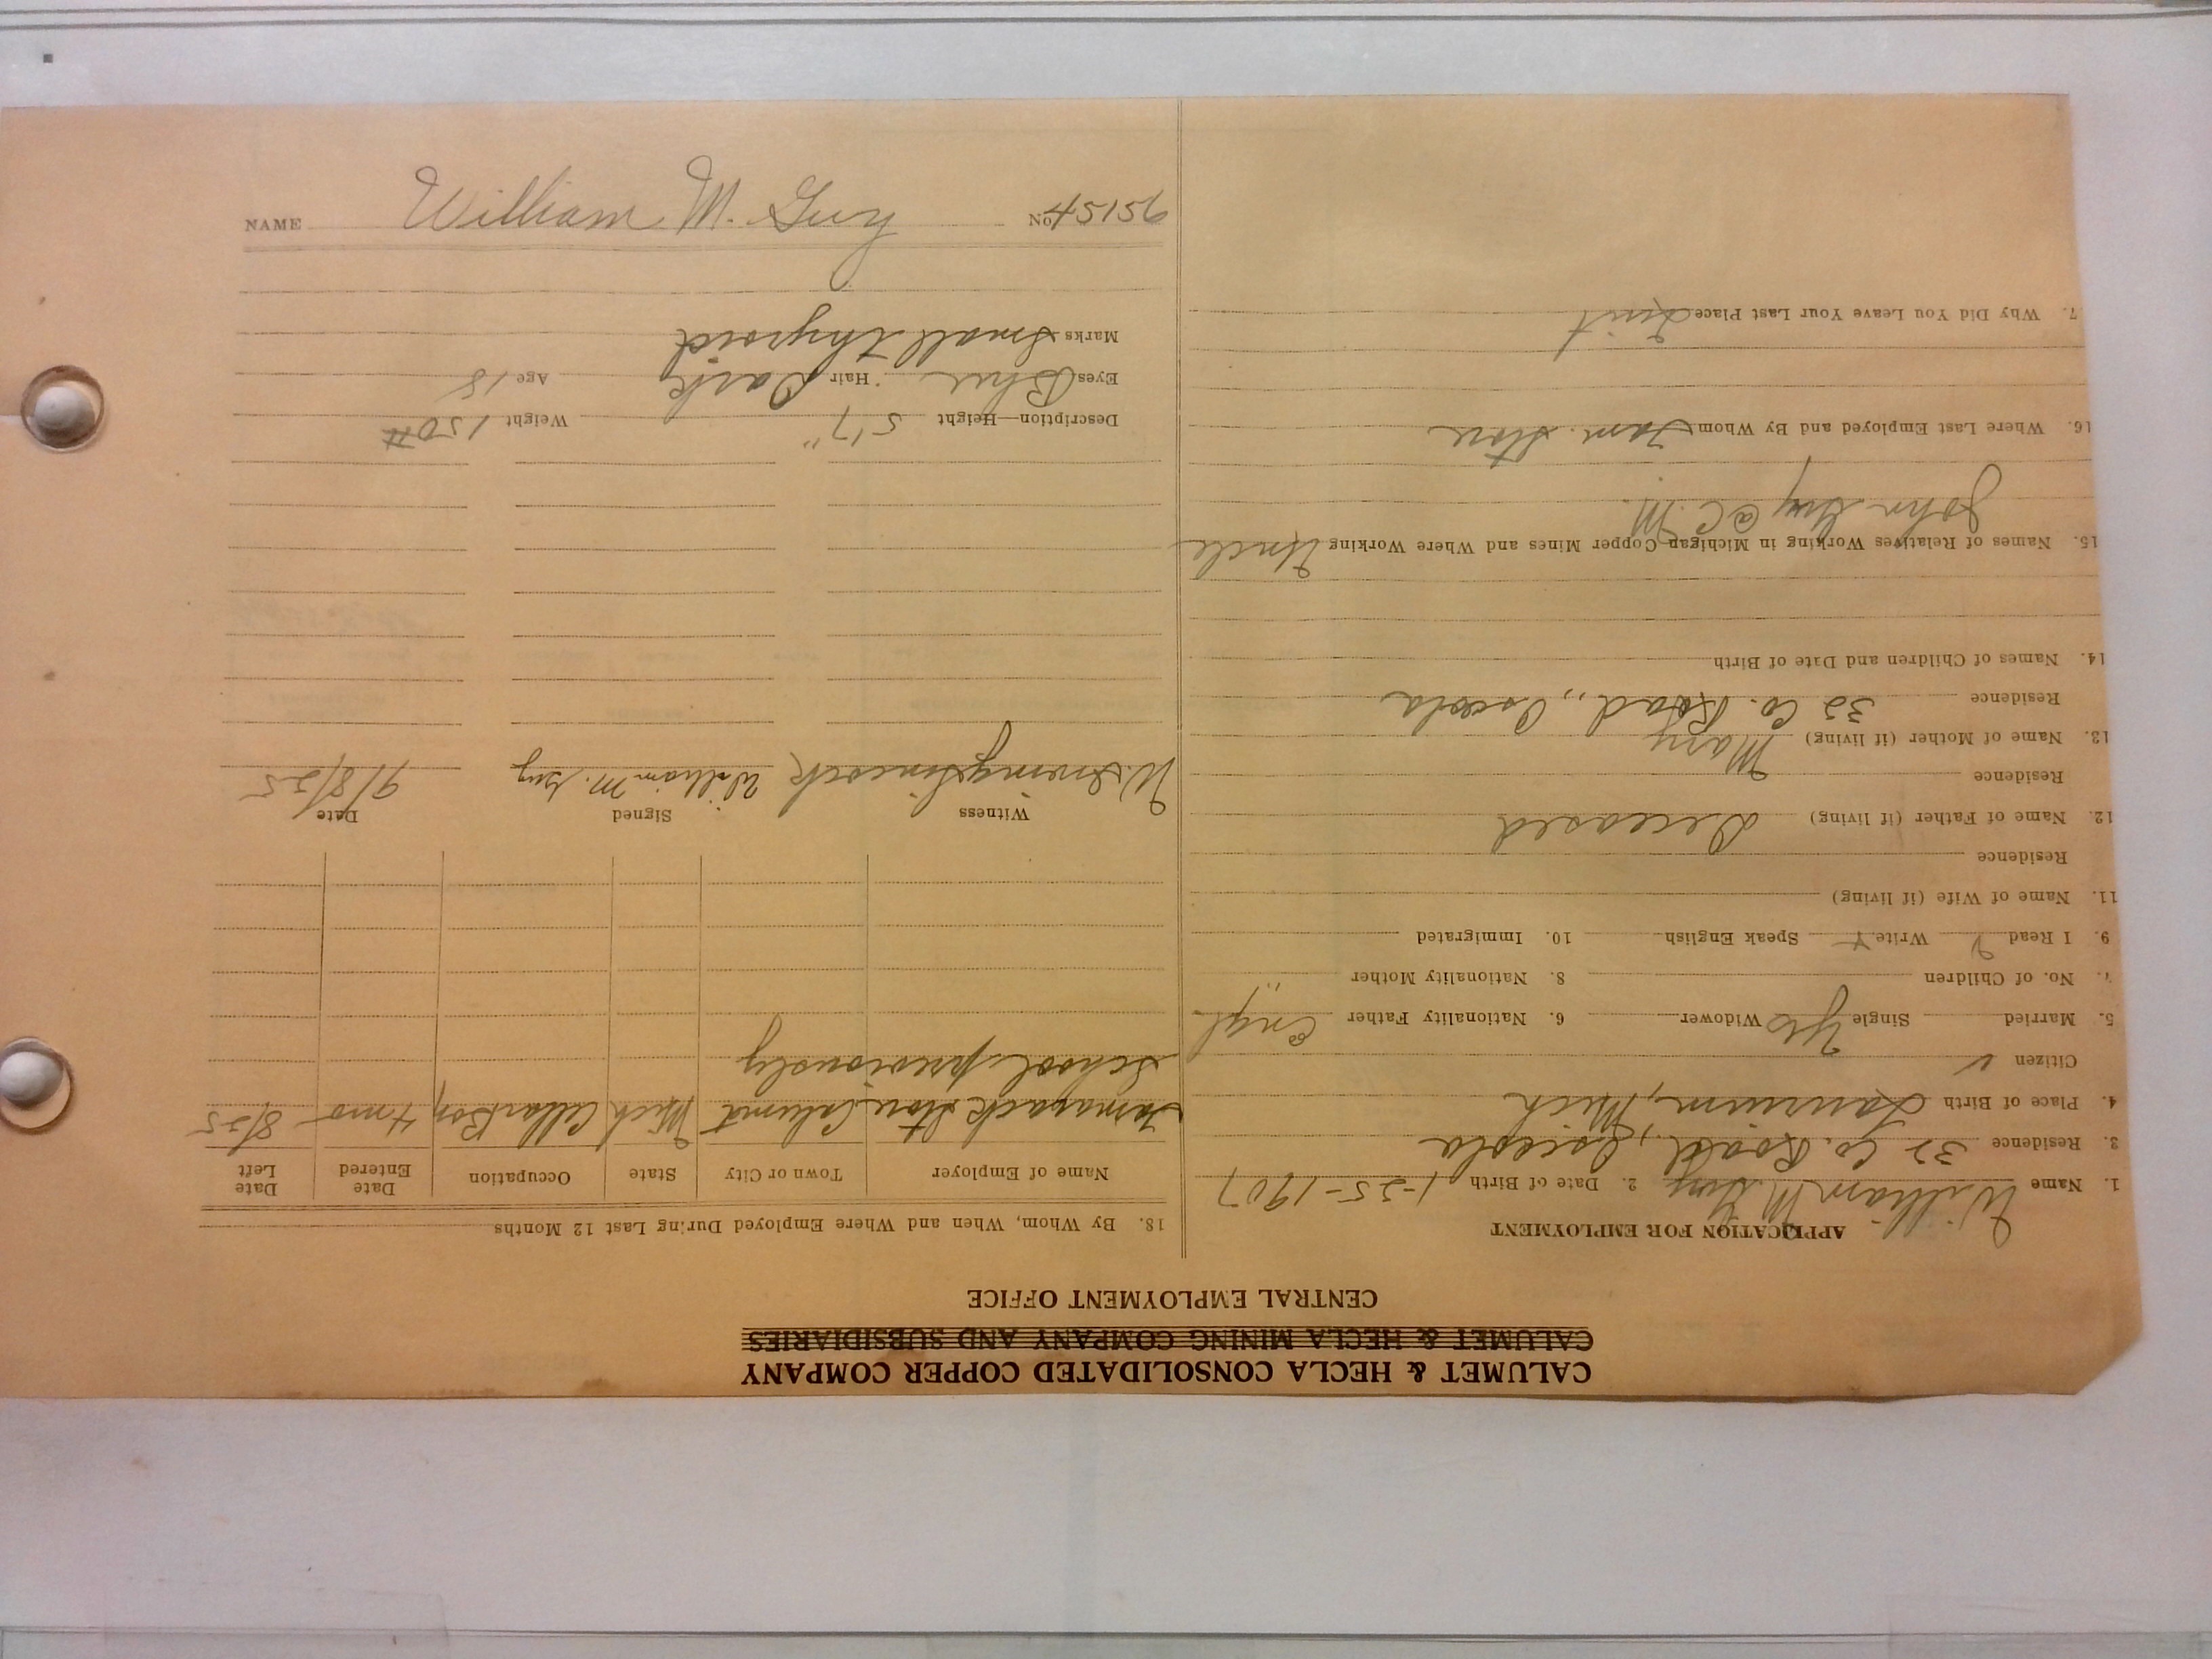 CALUMET & HECLA CONSOLIDATED COPPER COMPANY
CALUMET & HECLA MINING COMPANY AND SUBSIDIARIES
CENTRAL EMPLOYMENT OFFICE
APPLICATION FOR EMPLOYMENT
1. Name William M. Guy 2. Date of Birth 1-25-1907
3. Residence 32 Co. Road, Osceola
4. Place of Birth Laurium, Mich
Citizen ✓
5. Married Single Yes Widower 6. Nationality Father Engl.
7. No. of Children 8. Nationality Mother "
9. I Read Write Speak English 10. Immigrated
11. Name of Wife (if living)
Residence
12. Name of Father (if living) Deceased
Residence
13. Name of Mother (if living) Mary
Residence 32 Co. Road, Osceola
14. Names of Children and Date of Birth
15. Names of Relatives Working in Michigan Copper Mines and Where Working Uncle
John Guy @ C. M.
16. Where Last Employed and By Whom Tam. Store
7. Why Did You Leave Your Last Place Quit
18. By Whom, When and Where Employed During Last 12 Months
Name of Employer Town or City State Occupation Date Entered Date Left
Tamarack Store Calumet Mich Cellar Boy 4 mo 8/25
School previously
Witness Signed Date
W. Irving Sincock William M. Guy 9/8/25
Description—Height 5'7" Weight 150 #
Eyes Blue Hair Dark Age 18
Marks Small thyroid
NAME William M. Guy No. 45156